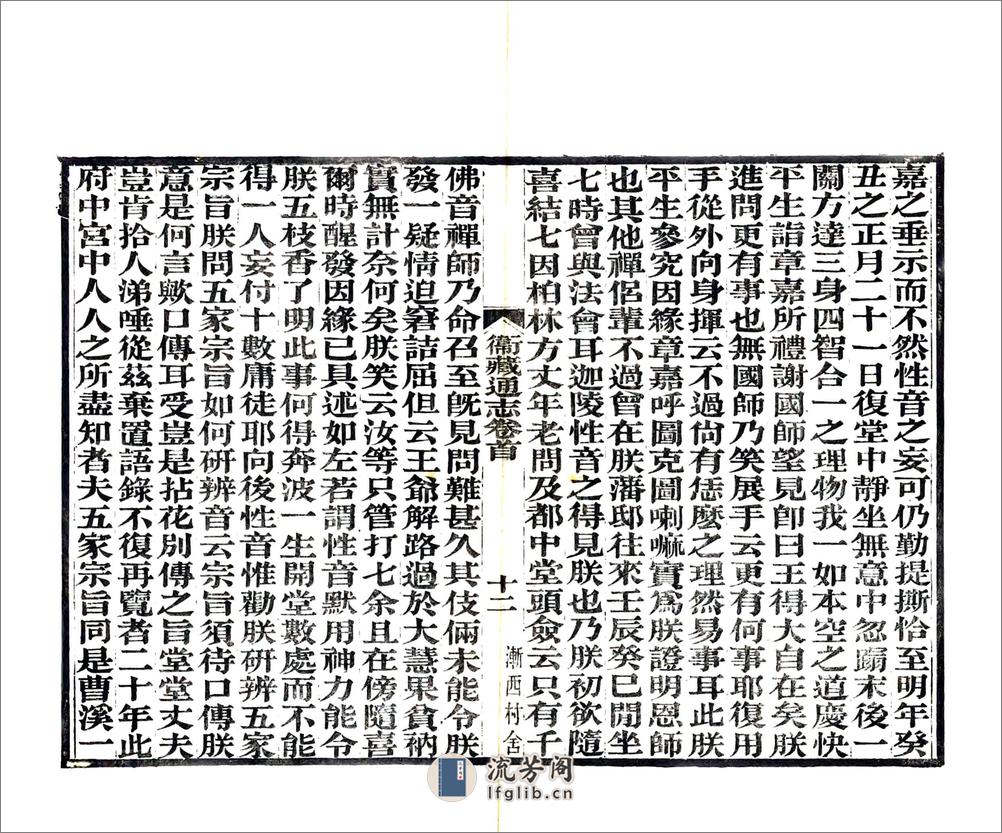 嘉之垂示而不然性音之妄可仍勤提撕恰至明年癸
丑之正月二十一日復堂中靜坐無意中忽蹋末後一
關方達三身四智合一之理物我一如本空之道慶快
平生詣章嘉所禮謝國師望見卽曰王得大自在矣朕
進問更有事也無國師乃笑展手云更有何事耶復用
手從外向身揮云不過尙有恁麽之理然易事耳此朕
平生參究因緣章嘉呼圖克圖喇嘛實爲朕證明恩師
也其他禪侶輩不過曾在朕藩邸往來壬辰癸巳閒坐
七時曾與法會耳迦陵性音之得見朕也乃朕初欲隨
喜結七因柏林方丈年老問及都中堂頭僉云只有千
衞藏通志卷首
十二
漸西村舍
佛音禪師乃命召至旣見問難甚久其伎倆未能令朕
發一疑情迫窘詰屈但云王爺解路過於大慧果貧衲
實無計奈何矣朕笑云汝等只管打七余且在傍隨喜
爾時醒發因緣已具述如左若謂性音默用神力能令
朕五枝香了明此事何得奔波一生開堂數處而不能
得一人妄付十數庸徒耶向後性音惟勸朕研辨五家
宗旨朕問五家宗旨如何研辨音云宗旨須待口傳朕
意是何言歟口傳耳受豈是拈花別傳之旨堂堂丈夫
豈肯拾人涕唾從茲棄置語錄不復再覽者二十年此
府中宮中人人之所盡知者夫五家宗旨同是曹溪一
流芳阁
lfglib.cn